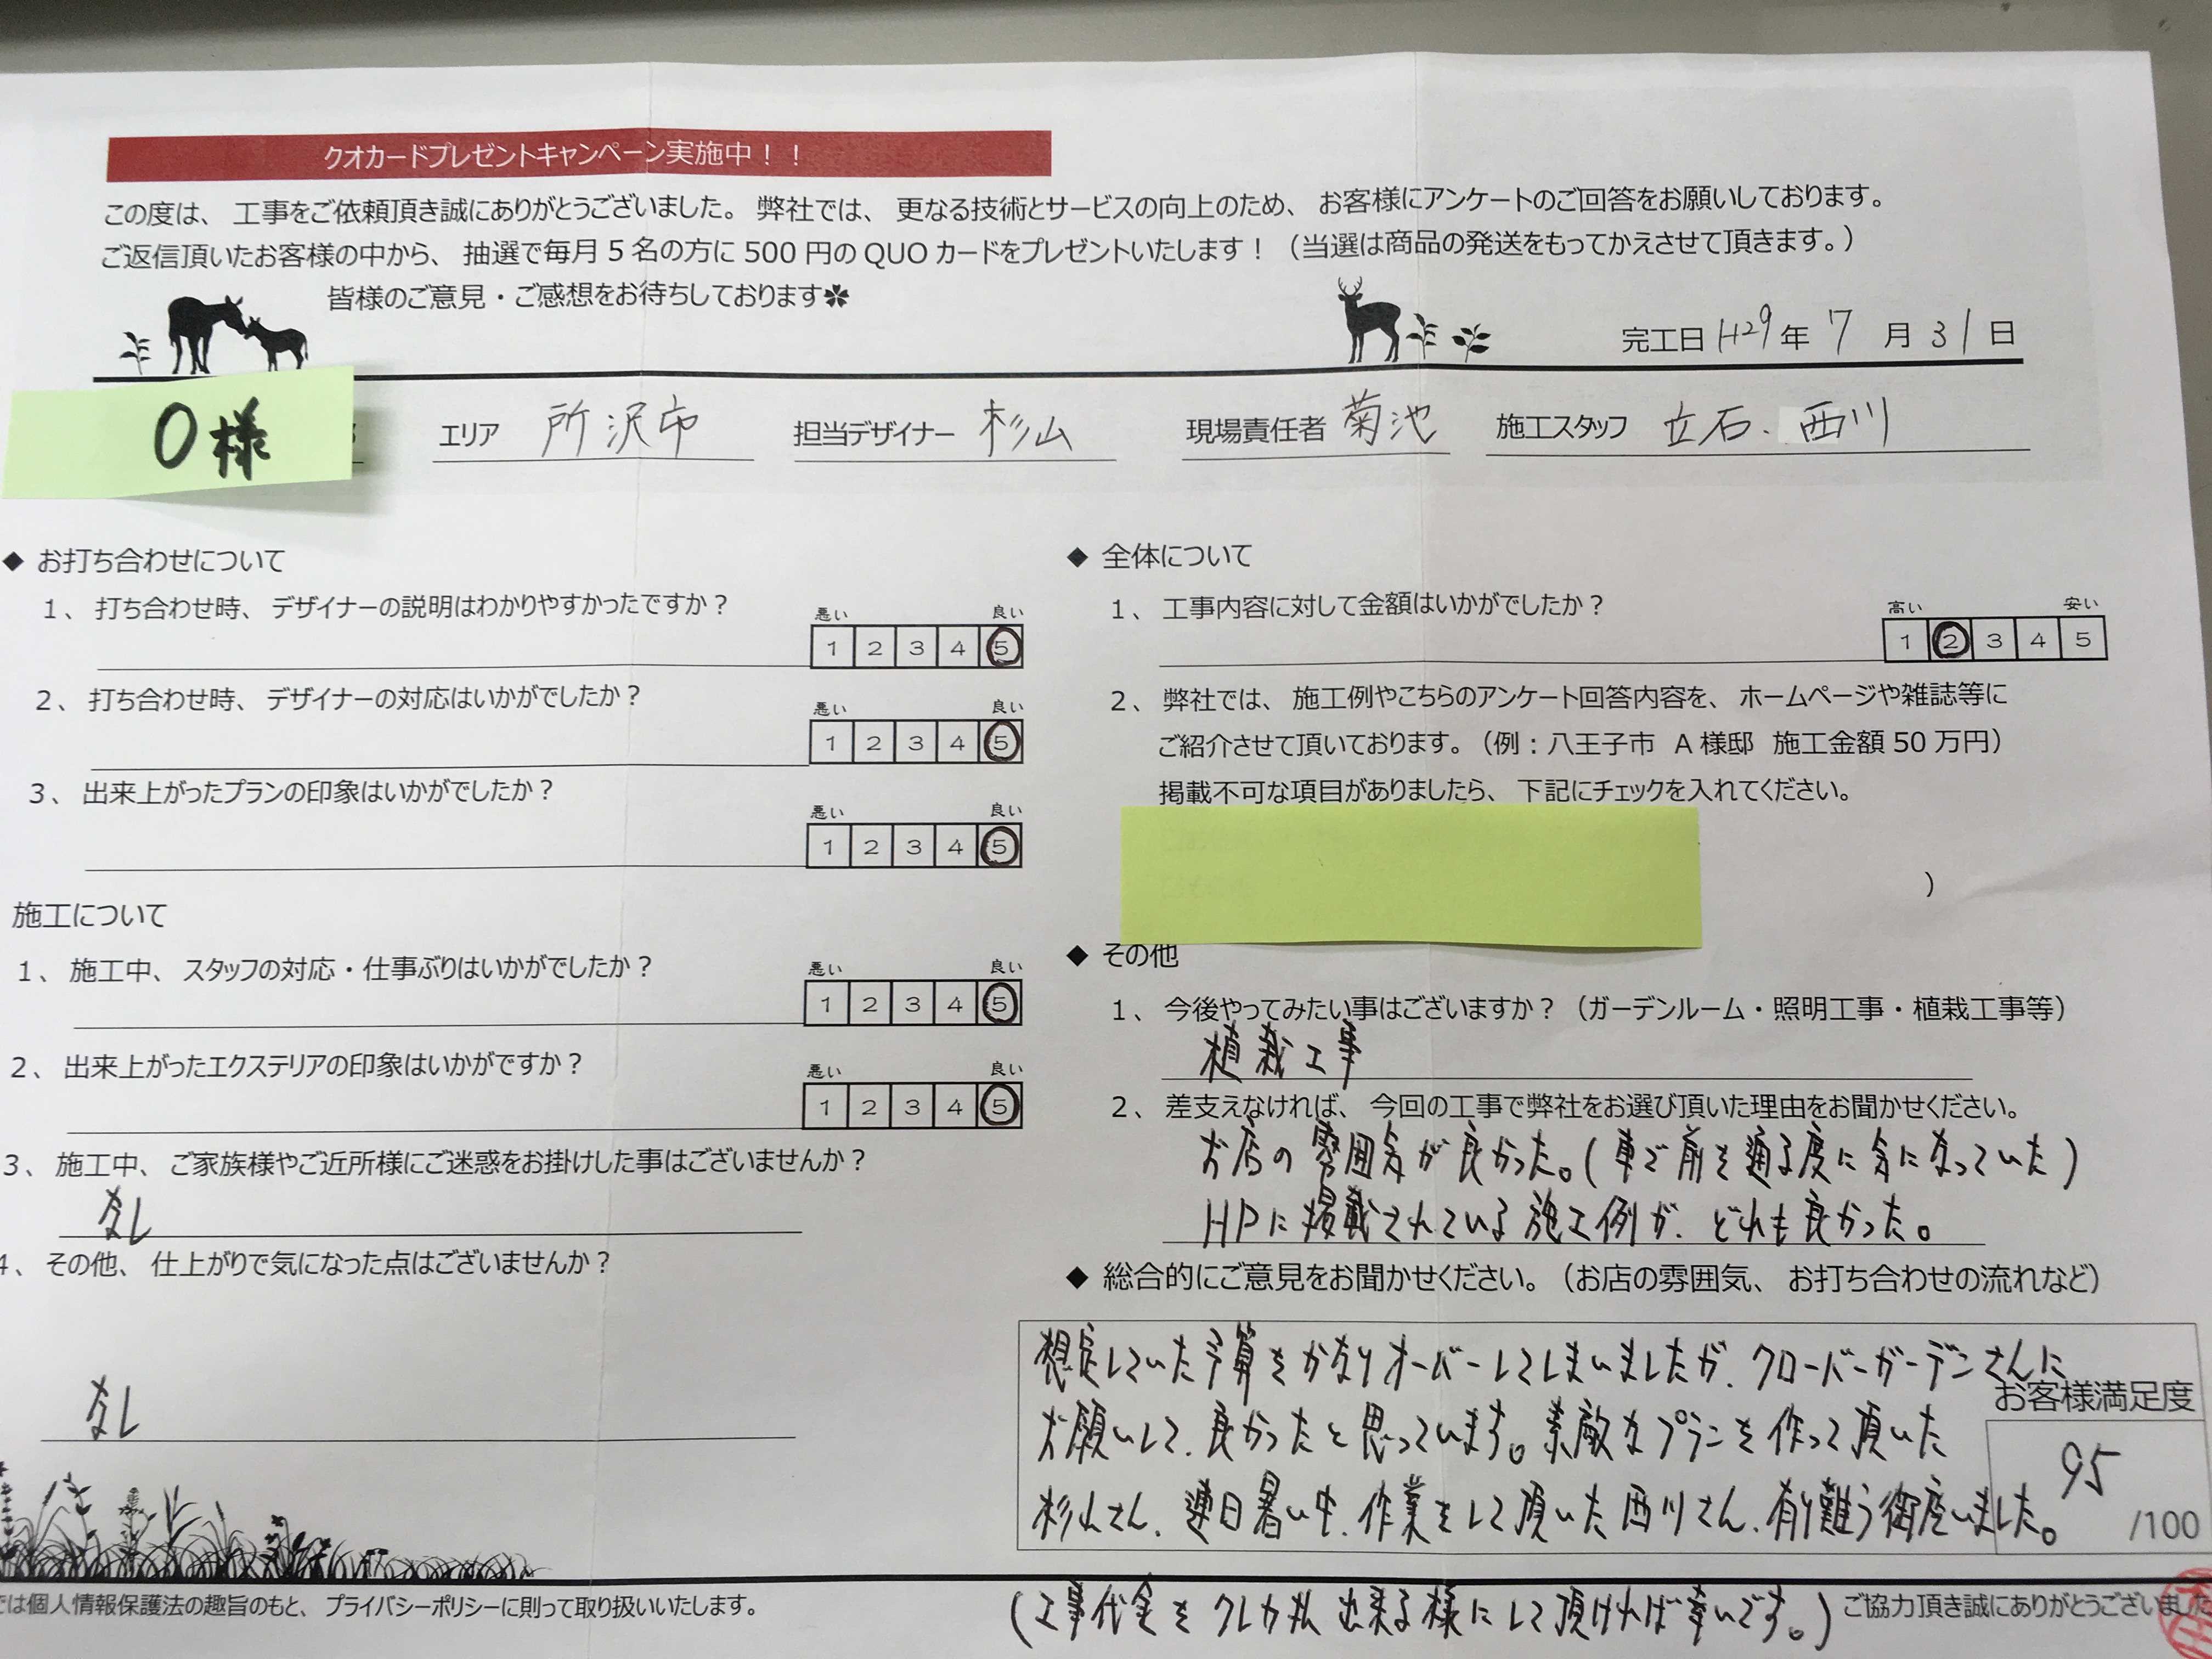 クオカードプレゼントキャンペーン実施中！！
この度は、工事をご依頼頂き誠にありがとうございました。弊社では、更なる技術とサービスの向上のため、お客様にアンケートのご回答をお願いしております。
ご返信頂いたお客様の中から、抽選で毎月5名の方に500円のQUOカードをプレゼントいたします！（当選は商品の発送をもってかえさせて頂きます。）
皆様のご意見・ご感想をお待ちしております
完工日 H29年 7月 31日
O様 エリア 所沢市 担当デザイナー 杉山 現場責任者 菊池 施工スタッフ 立石.西川
◆ お打ち合わせについて
1、打ち合わせ時、デザイナーの説明はわかりやすかったですか？
悪い 良い
1 2 3 4 5
2、打ち合わせ時、デザイナーの対応はいかがでしたか？
悪い 良い
1 2 3 4 5
3、出来上がったプランの印象はいかがでしたか？
悪い 良い
1 2 3 4 5
施工について
1、施工中、スタッフの対応・仕事ぶりはいかがでしたか？
悪い 良い
1 2 3 4 5
2、出来上がったエクステリアの印象はいかがですか？
悪い 良い
1 2 3 4 5
3、施工中、ご家族様やご近所様にご迷惑をお掛けした事はございませんか？
なし
4、その他、仕上がりで気になった点はございませんか？
なし
◆ 全体について
1、工事内容に対して金額はいかがでしたか？
高い 安い
1 2 3 4 5
2、弊社では、施工例やこちらのアンケート回答内容を、ホームページや雑誌等に
ご紹介させて頂いております。（例：八王子市 A様邸 施工金額50万円）
掲載不可な項目がありましたら、下記にチェックを入れてください。
）
◆ その他
1、今後やってみたい事はございますか？（ガーデンルーム・照明工事・植栽工事等）
植栽工事
2、差支えなければ、今回の工事で弊社をお選び頂いた理由をお聞かせください。
お店の雰囲気が良かった。(車で前を通る度に気になっていた)
HPに掲載されている施工例が、どれも良かった。
◆ 総合的にご意見をお聞かせください。（お店の雰囲気、お打ち合わせの流れなど）
想定していた予算をかなりオーバーしてしまいましたが、クローバーガーデンさんに
お願いして、良かったと思っています。素敵なプランを作って頂いた
杉山さん、連日暑い中、作業をして頂いた西川さん、有難う御座いました。
お客様満足度
95
/100
(工事代金をクレカ払出来る様にして頂ければ幸いです。)
では個人情報保護法の趣旨のもと、プライバシーポリシーに則って取り扱いいたします。
ご協力頂き誠にありがとうございました